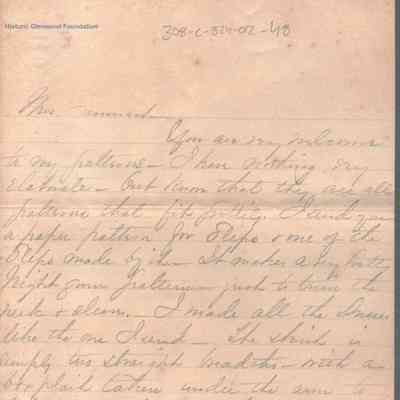 Historic Glenwood Foundation
308-C-504-02-43
Mrs.
You are very welcome
to my patterns - I have nothing very
elaborate - but know that they are all
patterns that fit prettily. I send you
a paper pattern for Slips & one of the
Slips made by it - It makes a very
Night gown pattern - just to trim the
neck & sleeves. - I made all the dresses
like the one I send - The skirt is
simply two straight breadths - with a
box plait taken under the arm to